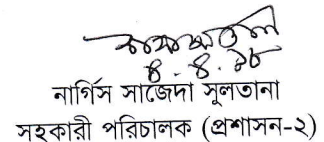 ৪.৪.১৮
নার্গিস সাজেদা সুলতানা
সহকারী পরিচালক (প্রশাসন-২)